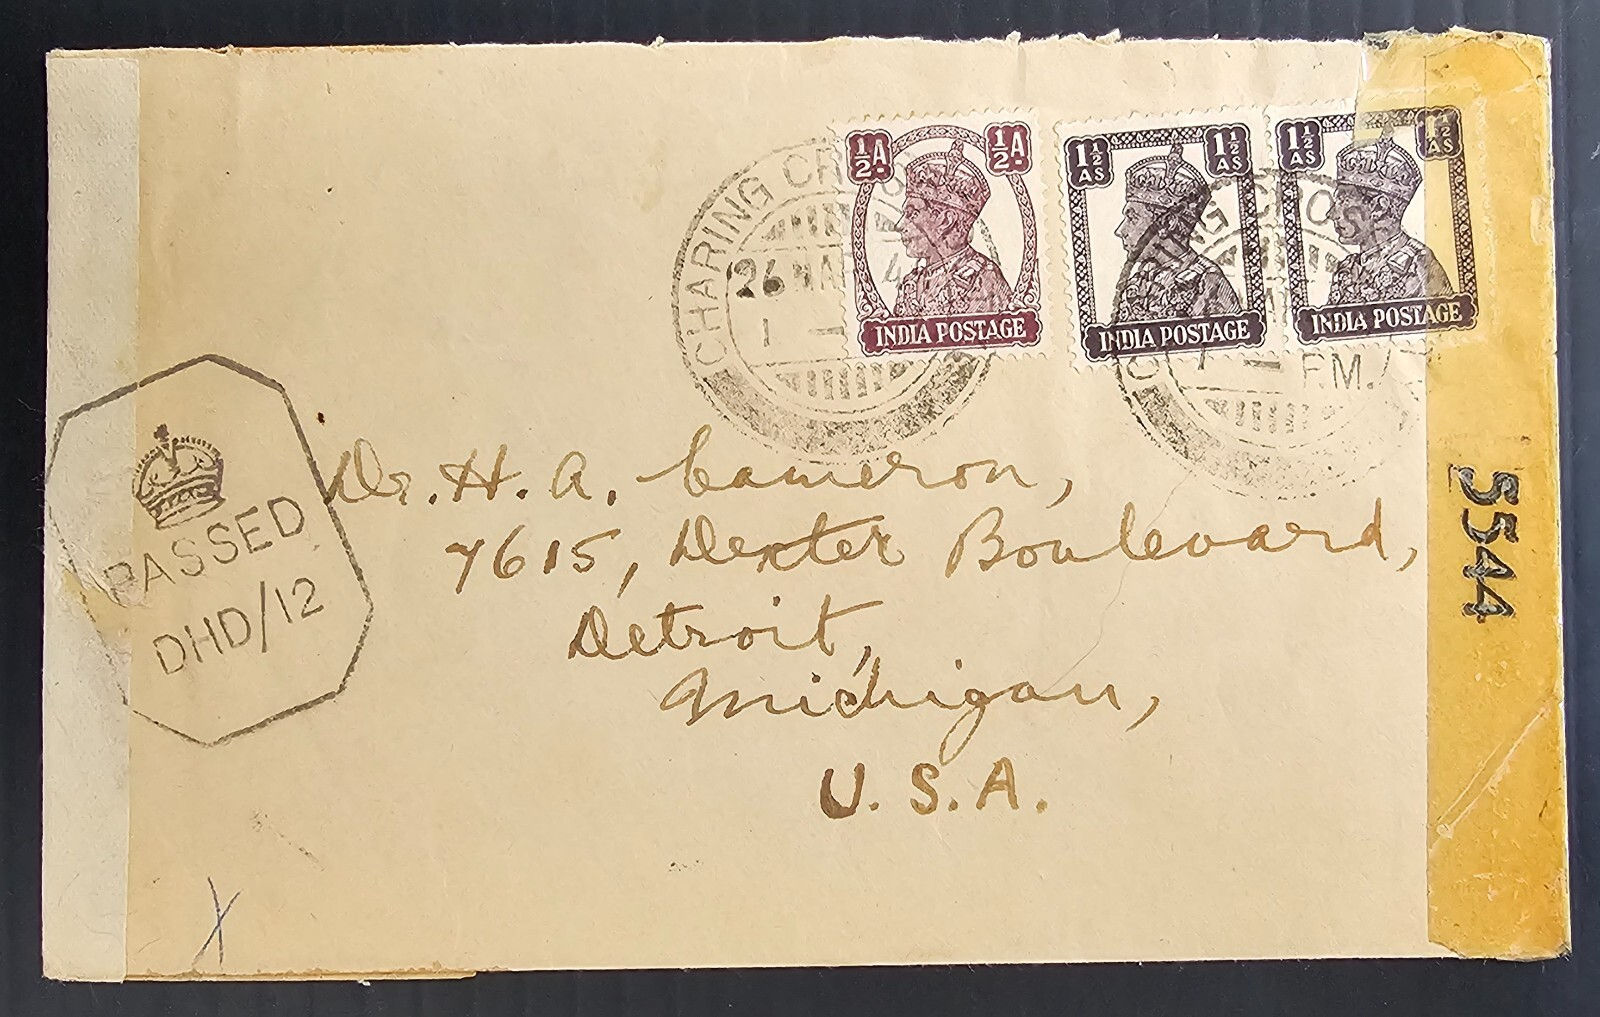 ½A. ½A.
INDIA POSTAGE
1½ AS 1½ AS
INDIA POSTAGE
1½ AS 1½ AS
INDIA POSTAGE
CHARING CROS
26 MA 4
1 –
RING CROS
1 – P.M.
PASSED
DHD/12
Dr. H. A. Cameron,
7615, Dexter Boulevard,
Detroit,
Michigan,
U.S.A.
5544
X